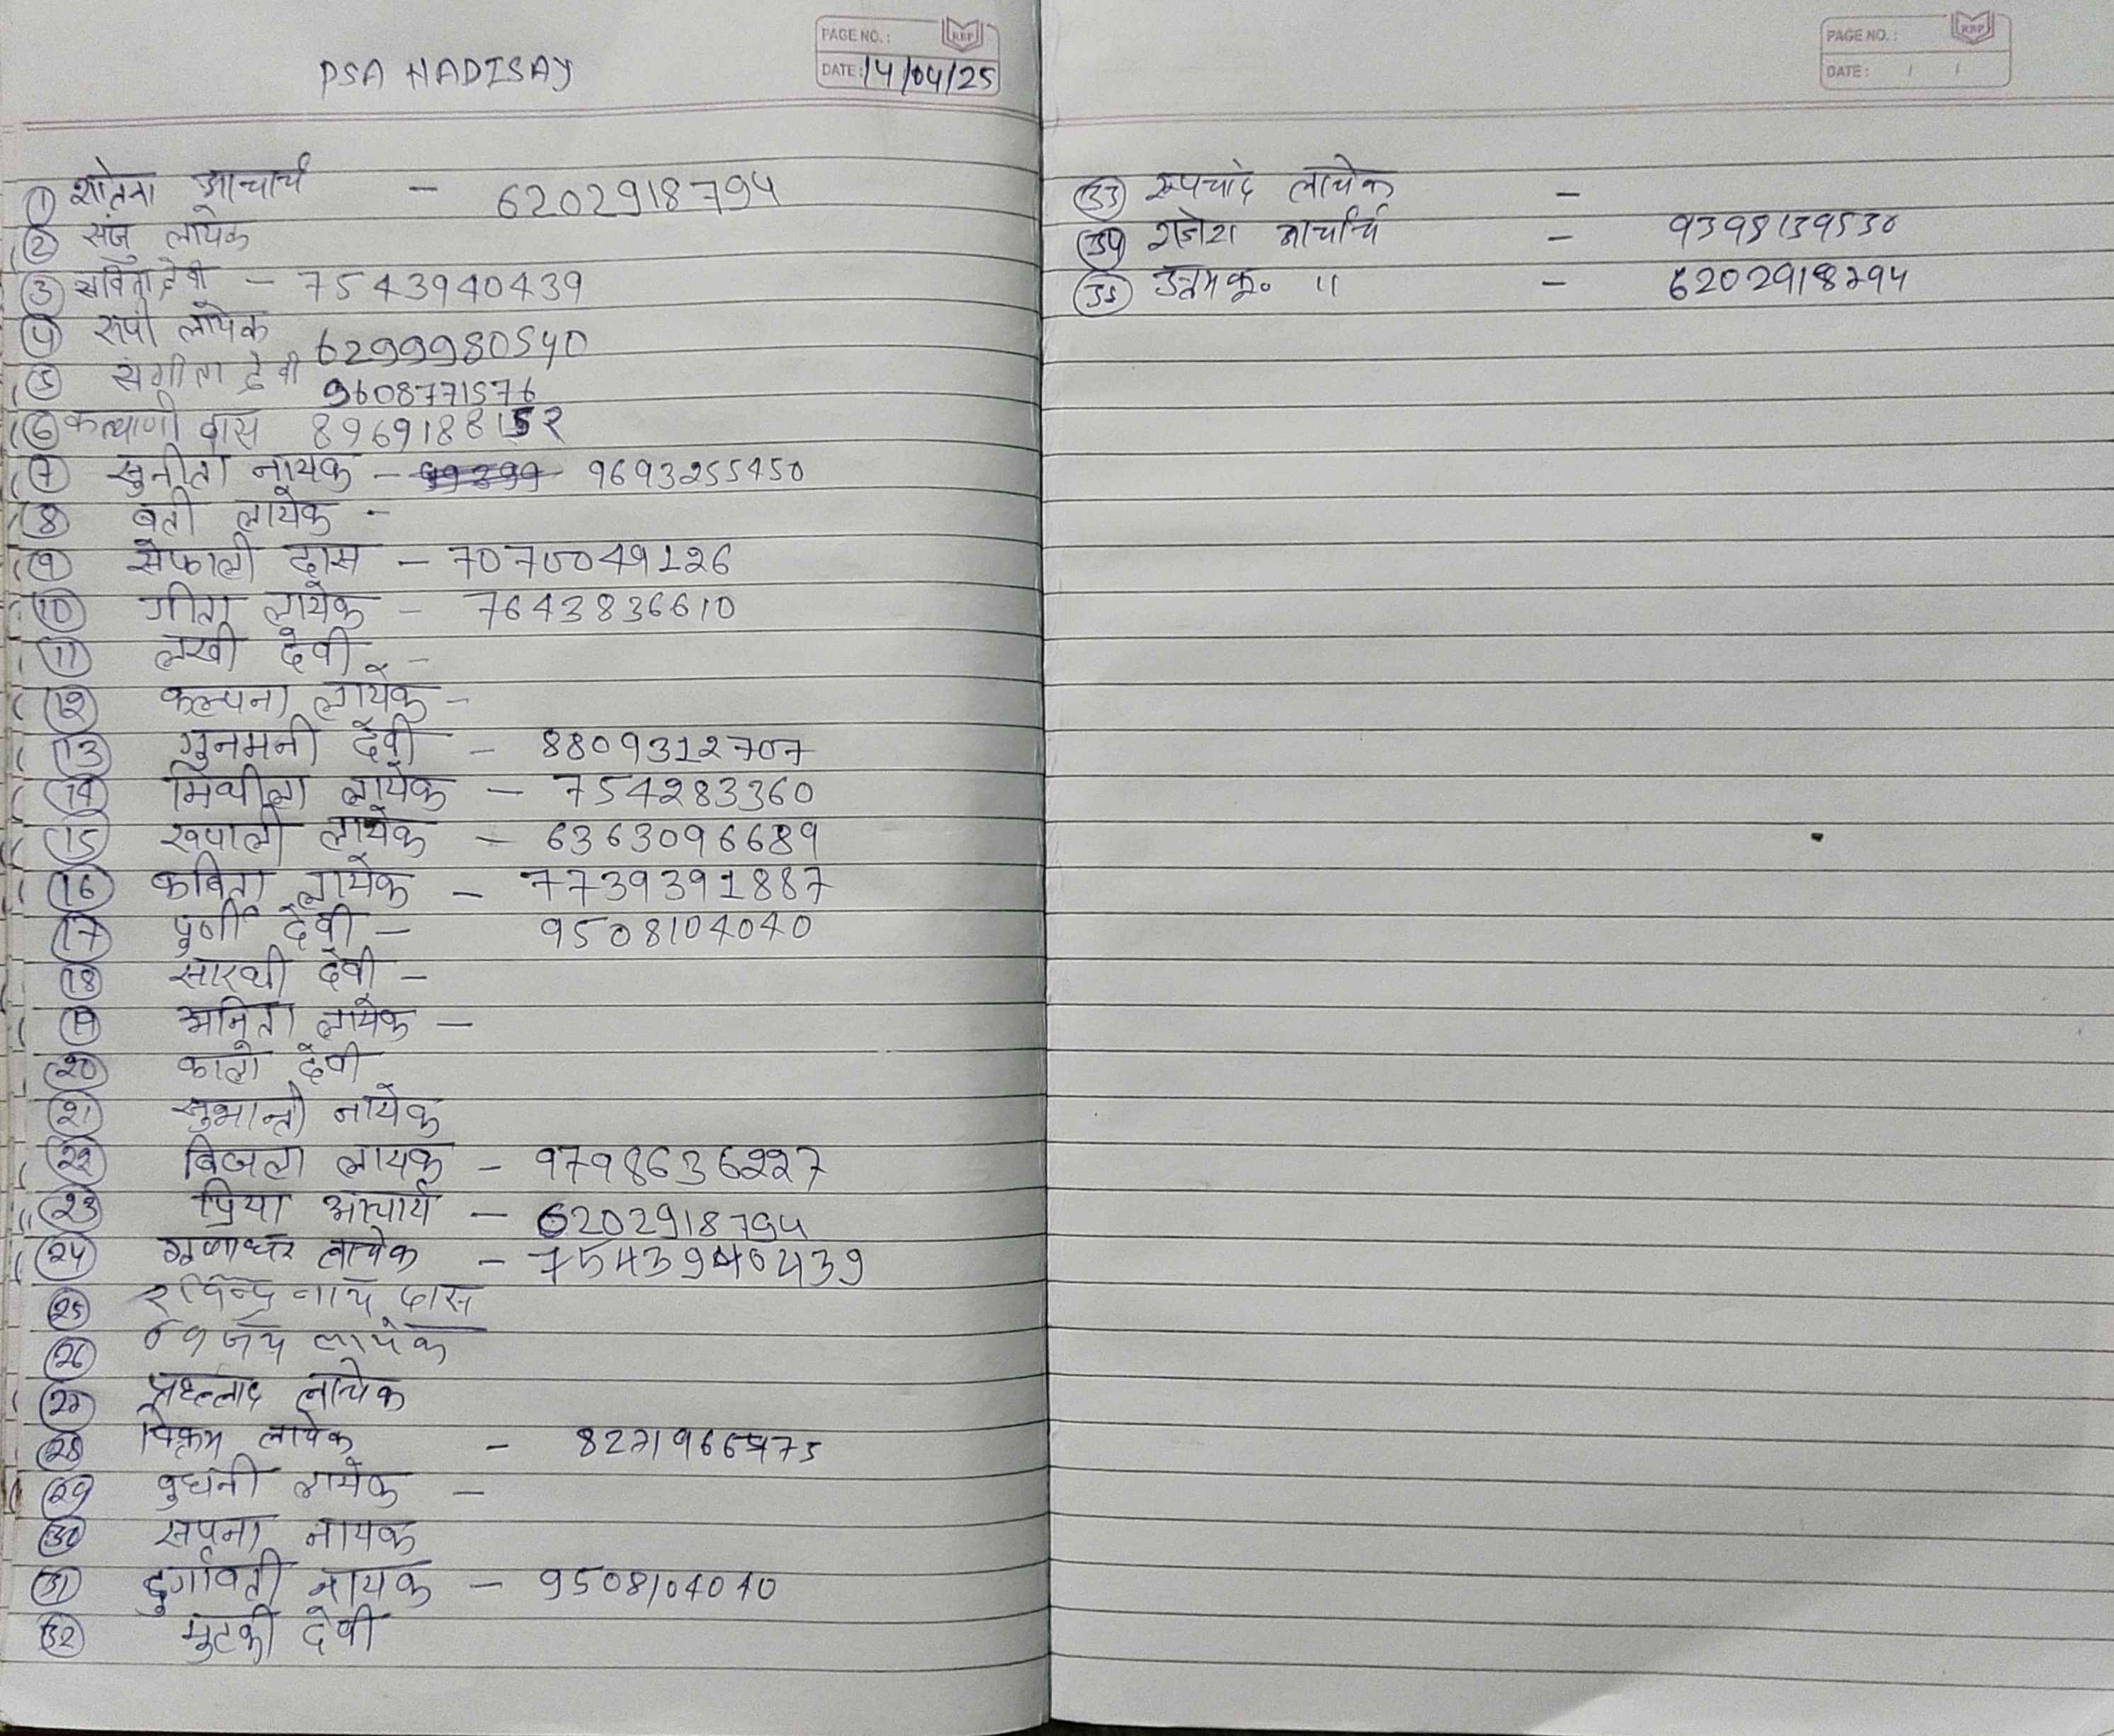 PAGE NO.:
RBP
DATE: 14/04/25
PSA HADISAY
① आचार्य - 6202918794
② संजु लायेक
③ सविता देवी - 7543940439
④ रूपी लायेक 6299980540
⑤ संगीता देवी 9608771576
⑥ कल्याणी दास 8969188152
⑦ सुनीता नायक - 9693255450
⑧ बती लायेक -
⑨ सेफाली दास - 7070049126
⑩ गीता लायेक - 7643836610
⑪ लखी देवी -
⑫ कल्पना लायेक -
⑬ गुनमनी देवी - 8809312707
⑭ मिथीला लायेक - 754283360
⑮ रूपाली लायेक - 6363096689
⑯ कविता लायेक - 7739391887
⑰ पूर्णी देवी - 9508104040
⑱ सारथी देवी -
⑲ अनिता लायेक -
⑳ काली देवी
㉑ लायेक
㉒ बिजला लायक - 9798636227
㉓ प्रिया आचार्य - 6202918794
㉔ गुणाधर लायेक - 7543940439
㉕ रविन्द्र नाथ दास
㉖ लायेक
㉗ प्रहल्लाद लायेक
㉘ विक्रम लायेक - 8271966473
㉙ बुधनी लायेक -
㉚ सपना नायक
㉛ दुर्गावती नायक - 9508104040
㉜ मुटकी देवी
PAGE NO.:
RBP
DATE: / /
㉝ रूपचांद लायेक -
㉞ राजेश आचार्य - 9398139530
㉟ उत्तम कु० 11 - 6202918794